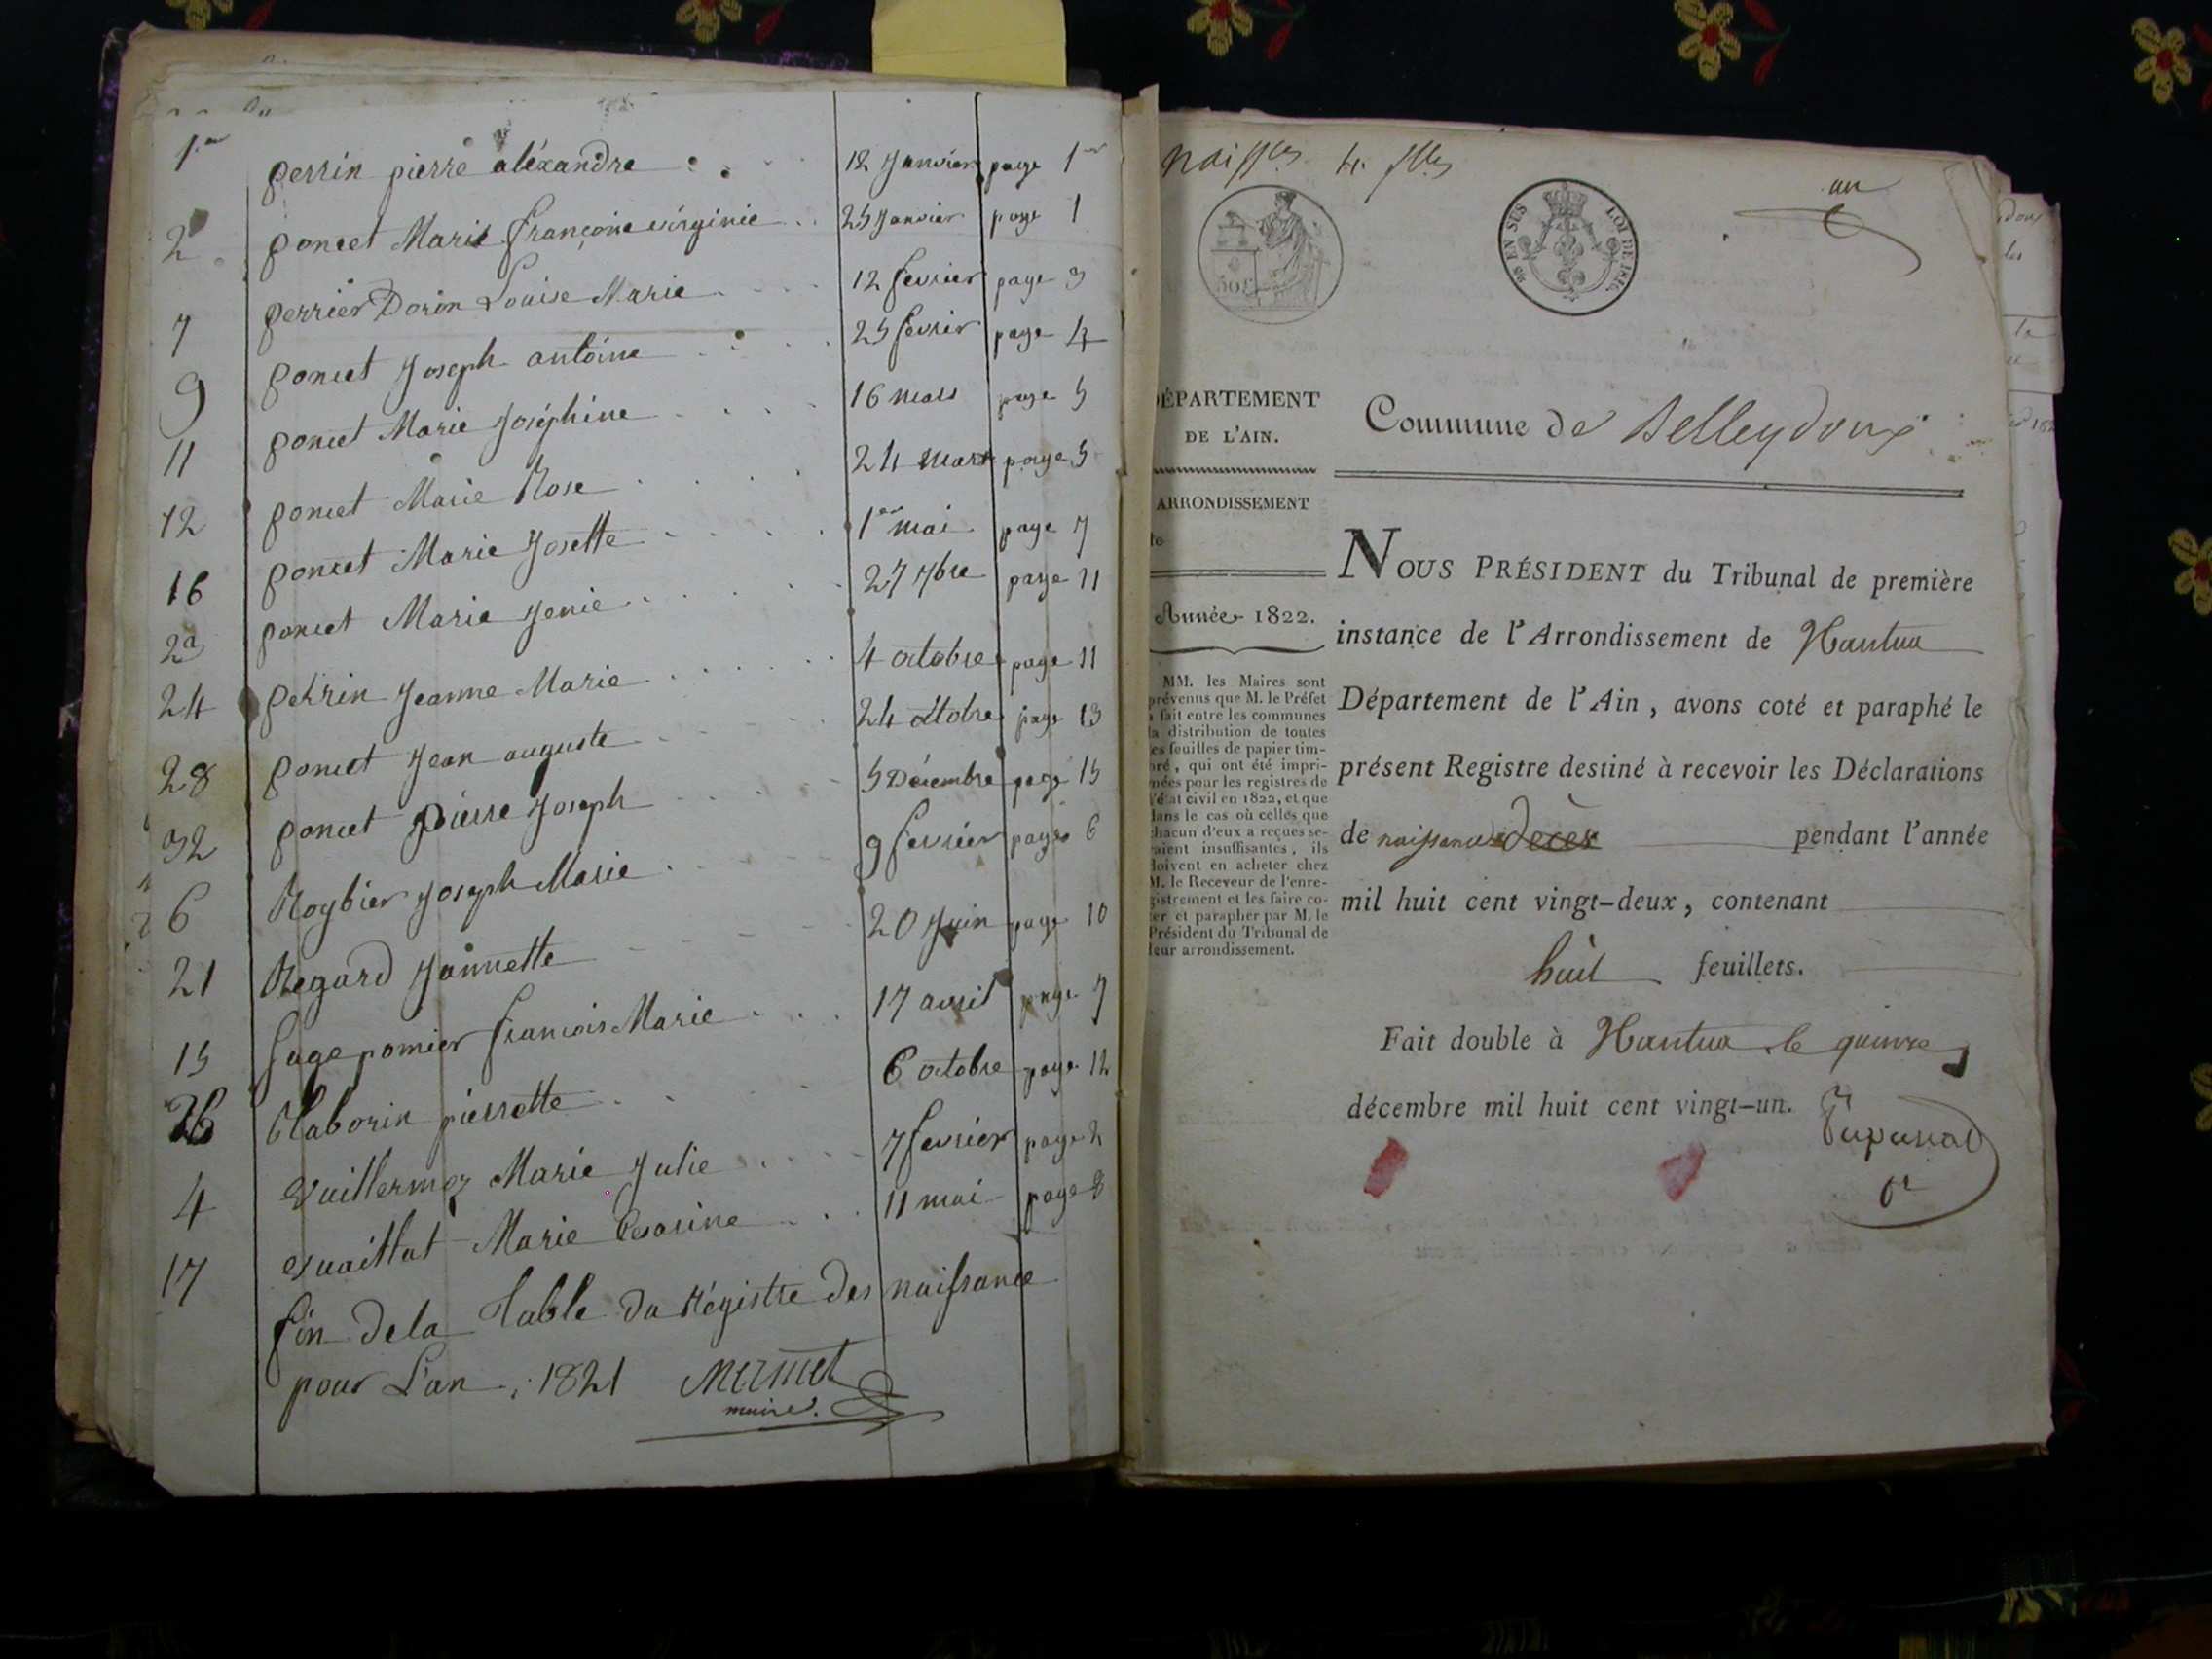 1.er perrin pierre aléxandre 12 Janvier page 1er
2 poncet Marie françoise virginie 25 Janvier page 1
7 perrier Dorin Louise Marie 12 fevrier page 3
9 poncet Joseph antoine 25 fevrier page 4
11 poncet Marie Joséphine 16 mars page 5
12 poncet Marie Rose 24 mars page 5
16 poncet Marie Josette 1er mai page 7
23 poncet Marie Jenie 27 7bre page 11
24 perrin Jeanne Marie 4 octobre page 11
28 poncet Jean auguste 24 octobre page 13
32 poncet pierre Joseph 5 Décembre page 15
6 Roybier Joseph Marie 9 fevrier page 6
21 Regard Jannette 20 Juin page 10
15 Sage pomier francois Marie 17 avril page 7
26 Taborin pierrette 6 octobre page 12
4 Vuillermoz Marie Julie 7 fevrier page 2
17 Vuaillat Marie Cesarine 11 mai page 8
fin de la Table du Régistre des naissance
pour L'an 1821 Mermet
maire
naissces 4 flles
un
50 EN SUS LOI DE 1816.
DÉPARTEMENT
DE L'AIN.
Commune de Belleydoux
ARRONDISSEMENT
Année 1822.
MM. les Maires sont
prévenus que M. le Préfet
a fait entre les communes
la distribution de toutes
les feuilles de papier tim-
bré, qui ont été impri-
mées pour les registres de
l'état civil en 1822, et que
dans le cas où celles que
chacun d'eux a reçues se-
raient insuffisantes, ils
doivent en acheter chez
M. le Receveur de l'enre-
gistrement et les faire co-
ter et parapher par M. le
Président du Tribunal de
leur arrondissement.
NOUS PRÉSIDENT du Tribunal de première
instance de l'Arrondissement de Nantua
Département de l'Ain, avons coté et paraphé le
présent Registre destiné à recevoir les Déclarations
de naissances Décès pendant l'année
mil huit cent vingt-deux, contenant
huit feuillets.
Fait double à Nantua le quinze
décembre mil huit cent vingt-un.